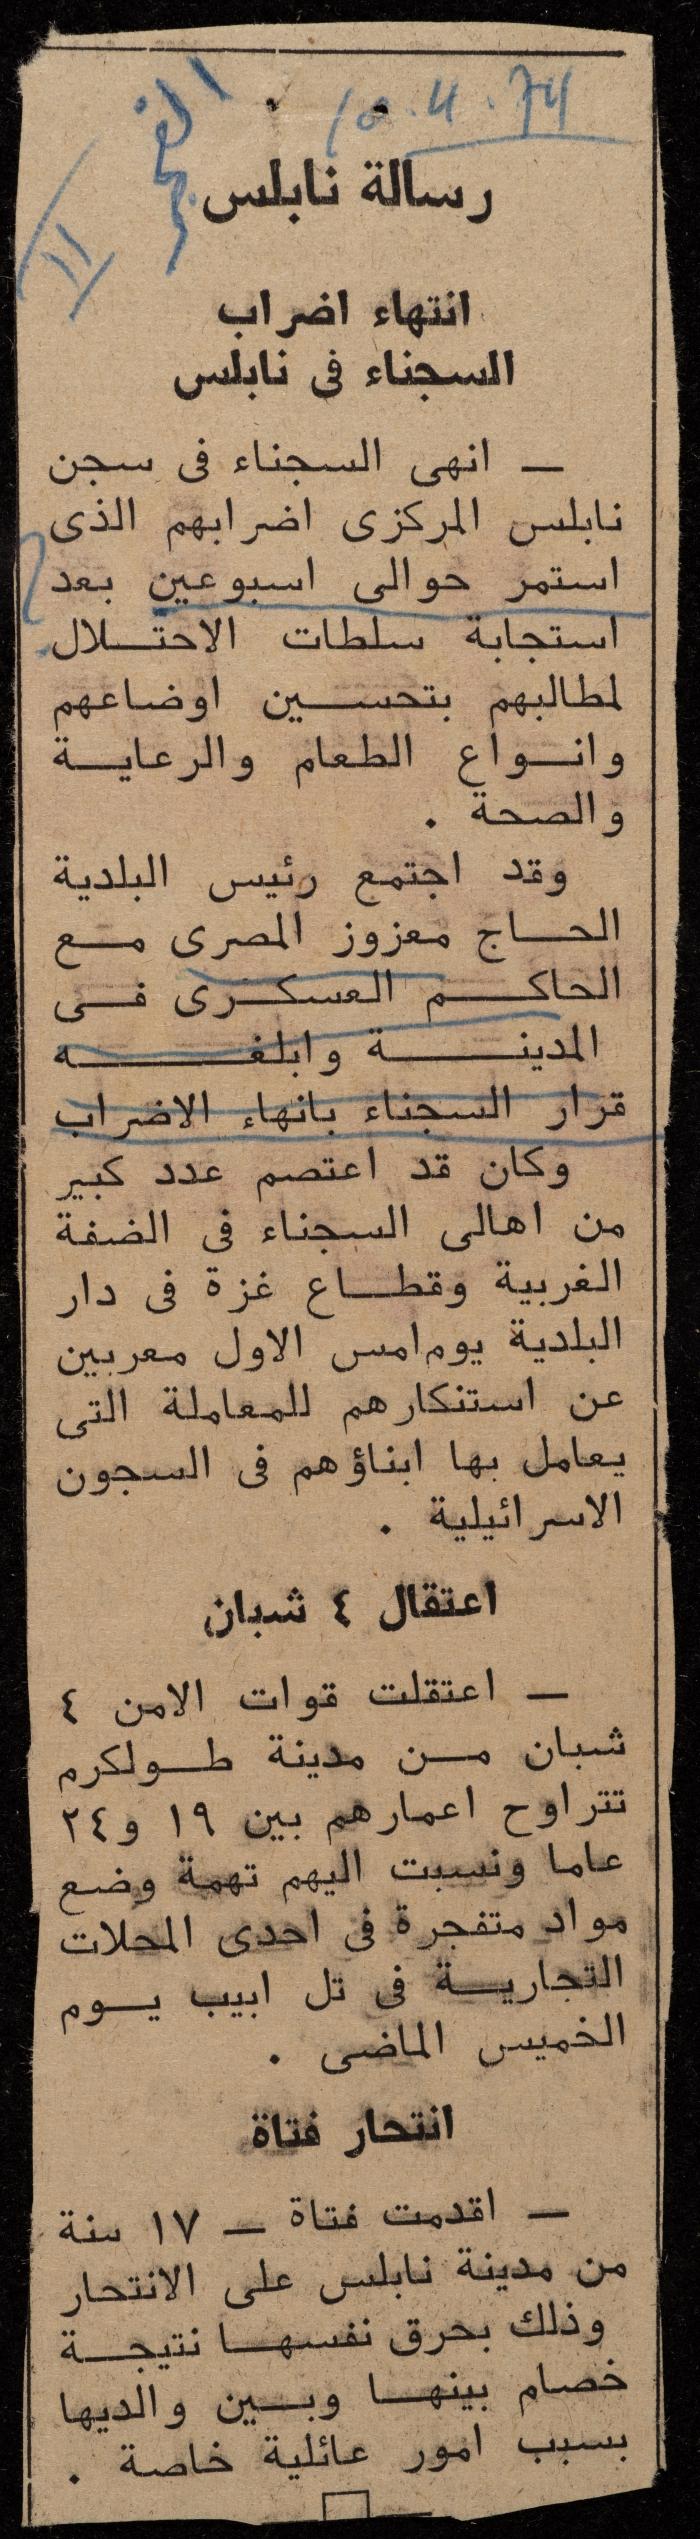 10.4.74
الفجر
11
رسالة نابلس
انتهاء اضراب
السجناء فى نابلس
— انهى السجناء فى سجن
نابلس المركزى اضرابهم الذى
استمر حوالى اسبوعين بعد
استجابة سلطات الاحتلال
لمطالبهم بتحسين اوضاعهم
وانواع الطعام والرعاية
والصحة .
وقد اجتمع رئيس البلدية
الحاج معزوز المصرى مع
الحاكم العسكرى فى
المدينة وابلغه
قرار السجناء بانهاء الاضراب
وكان قد اعتصم عدد كبير
من اهالى السجناء فى الضفة
الغربية وقطاع غزة فى دار
البلدية يوم امس الاول معربين
عن استنكارهم للمعاملة التى
يعامل بها ابناؤهم فى السجون
الاسرائيلية .
اعتقال ٤ شبان
— اعتقلت قوات الامن ٤
شبان من مدينة طولكرم
تتراوح اعمارهم بين ١٩ و٢٤
عاما ونسبت اليهم تهمة وضع
مواد متفجرة فى احدى المحلات
التجارية فى تل ابيب يوم
الخميس الماضى .
انتحار فتاة
— اقدمت فتاة — ١٧ سنة
من مدينة نابلس على الانتحار
وذلك بحرق نفسها نتيجة
خصام بينها وبين والديها
بسبب امور عائلية خاصة .